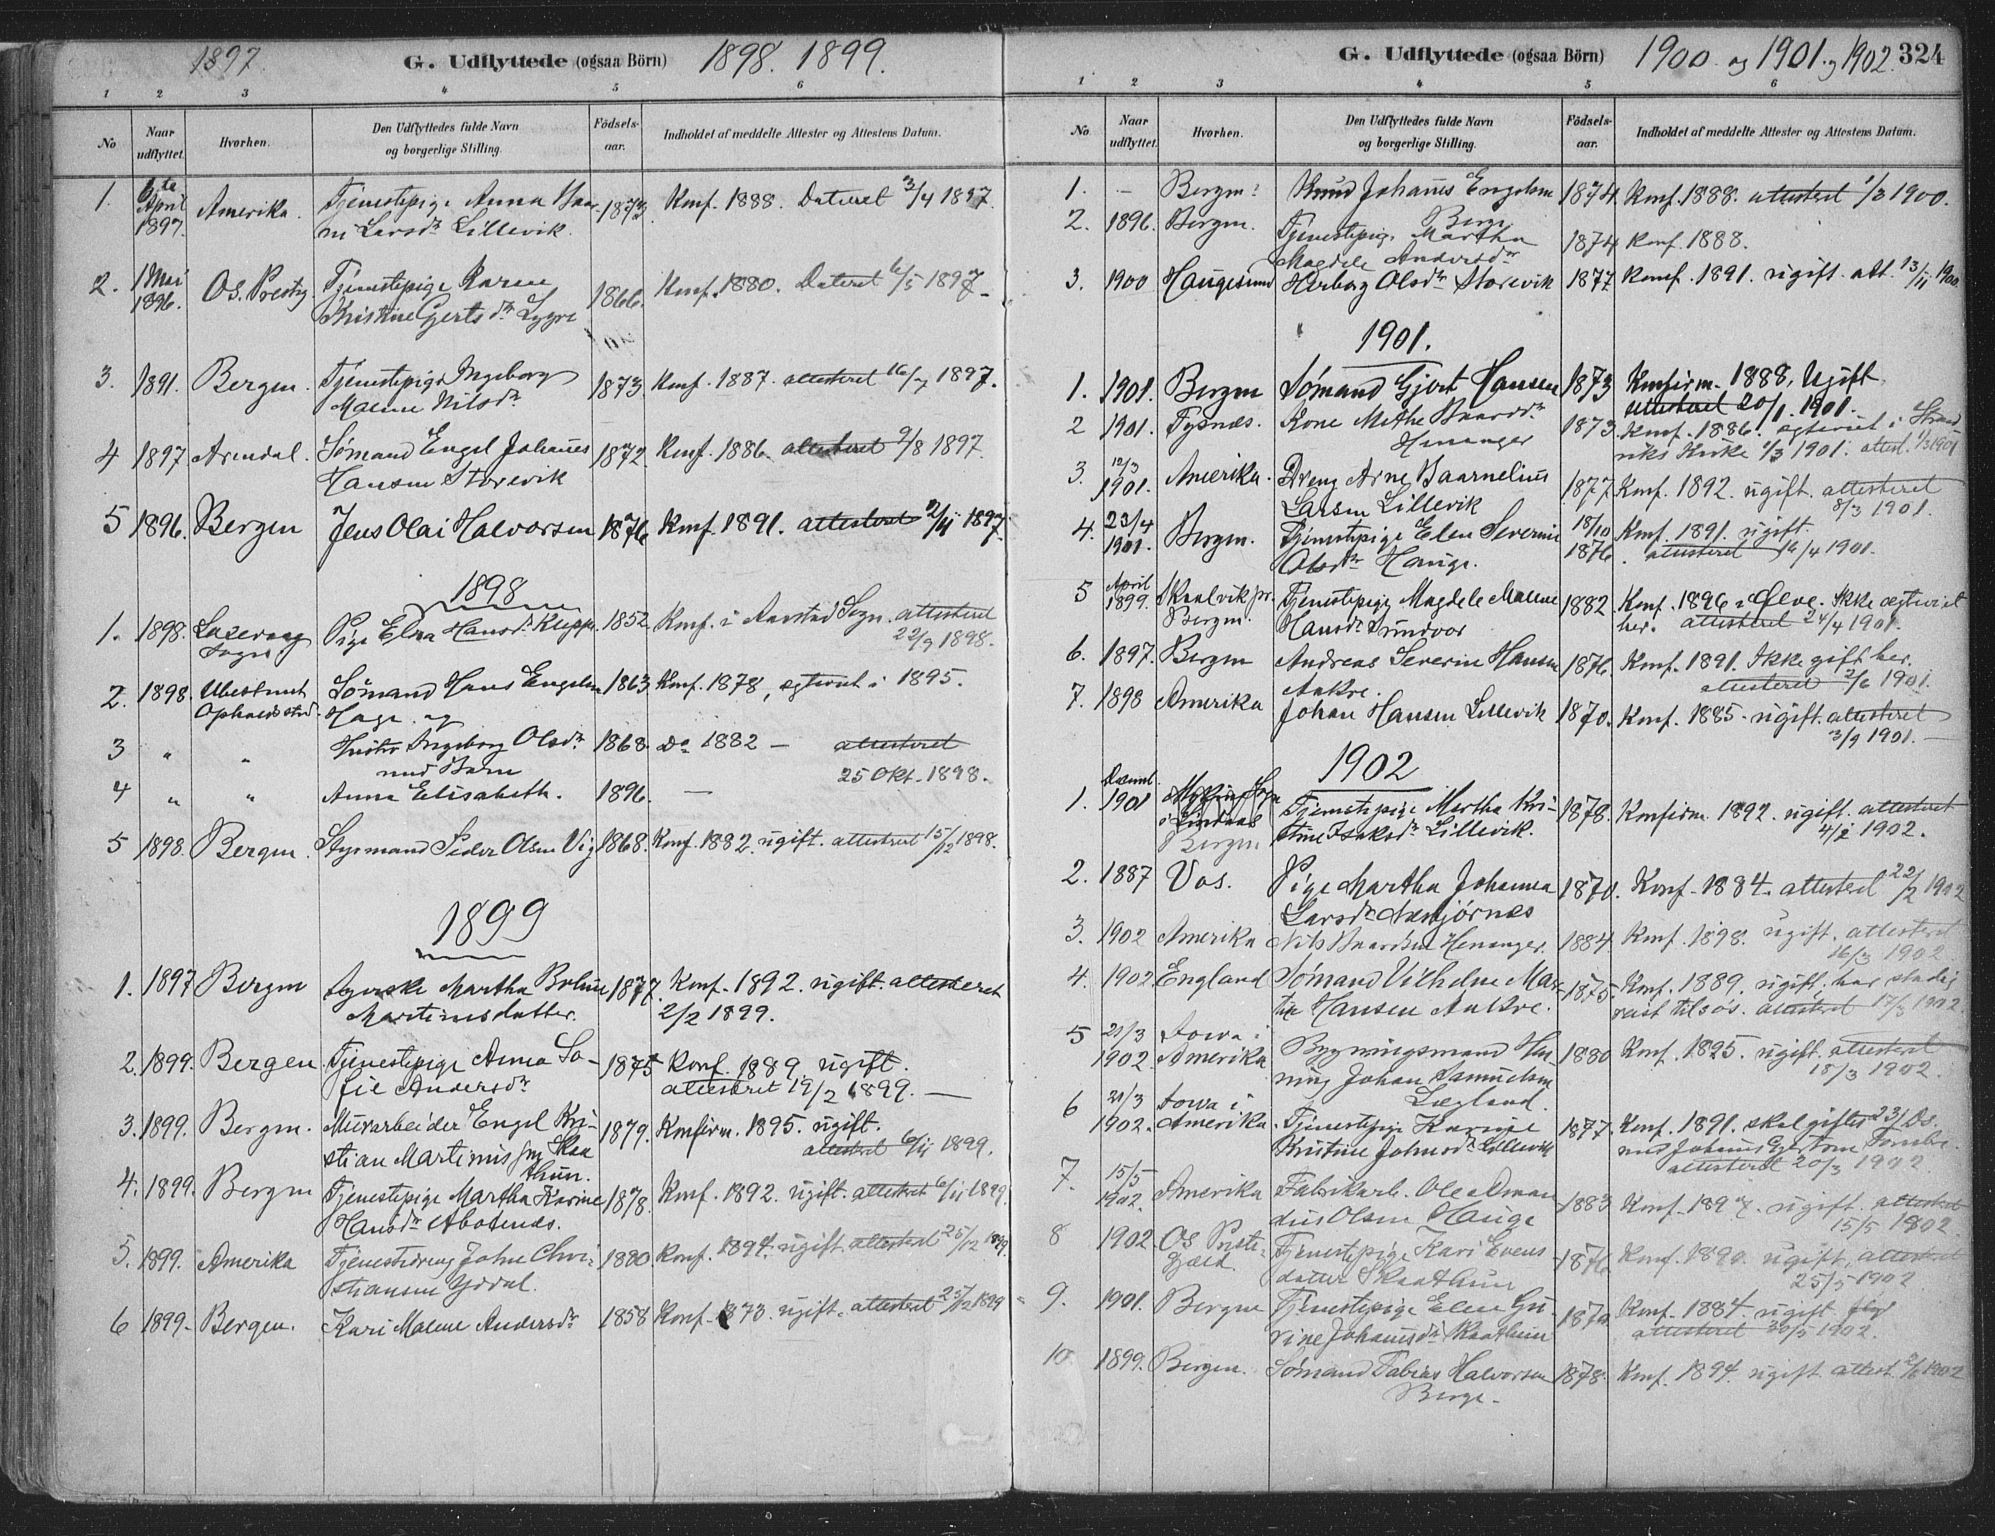 1897.
G. Udflyttede (ogsaa Börn)
1898. 1899.
1 2 3 4 5 6
No
Naar udflyttet.
Hvorhen.
Den Udflyttedes fulde Navn
og borgerlige Stilling.
Födsels-aar.
Indholdet af meddelte Attester og Attestens Datum.
1. 6te April 1897. Amerika. Tjenestepige Anna Baar- 1873. Konf. 1888. Dateret 3/4 1897.
ni Larsdr Lillevik.
2. 1 Mai 1896. Os. Prestg Tjenestepige Karen 1866. Konf. 1880. Dateret 6/5 1897
Kristine Gertsdr Lygre
3. 1891. Bergen. Tjenestepige Ingeborg 1873. Konf. 1887. attesteret 16/7 1897.
Malene Nilsdr
4 1897 Arendal. Sömand Engel Johannes 1872. Konf. 1886. attesteret 9/8 1897.
Hansen Storevik
5 1896. Bergen Jens Olai Halvorsen 1876. Konf. 1891. attesteret 2/11 1897.
1898
1. 1898. Sogn Pige Elna Hansdr Klepp. 1852. Konf. i Sogn. attesteret
22/9 1898.
2. 1898. Ubestemt Sömand Hans Engelsen 1863 Konf. 1878, egteviet i 1895.
Opholdssted. Hage. og
3 " " Hustru Ingeborg Olsdr 1868. Do 1882 — attesteret
med Barn 25 Okt. 1898.
4 " " Anna Elisabeth. 1896. —
5 1898. Bergen. Styrmand Peder Olsen Vig 1868. Konf. 1882. ugift. attesteret 15/12 1898.
1899
1. 1897 Bergen Martha 1877. Konf. 1892. ugift. attesteret
Martinusdatter. 2/2 1899.
2. 1899. Bergen. Tjenestepige Anna So- 1875 Konf. 1889. ugift.
fie Andersdr attesteret 19/2 1899. —
3. 1899. Bergen. Murarbeider Engel Kri- 1879. Konfirm. 1895. ugift.
stian Martinussen Skaa attesteret 6/11 1899.
thun.
4. 1899. Bergen Tjenestepige Martha Karine 1878. Konf. 1892. ugift. attesteret 6/11 1899.
Hansdr
5. 1899. Amerika Tjenestedreng John Chri- 1880 Konf. 1894. ugift attesteret 25/12 1899.
stiansen Yddal.
6 1899. Bergen. Kari Malene Andersdr 1858 Konf. 1873. ugift. attesteret 25/12 1899
G. Udflyttede (ogsaa Börn)
1900. og 1901. og 1902. 324
1 2 3 4 5 6
No
Naar udflyttet.
Hvorhen.
Den Udflyttedes fulde Navn
og borgerlige Stilling.
Födsels-aar.
Indholdet af meddelte Attester og Attestens Datum.
1. — Bergen. Knud Johannes Engelsen 1874. Konf. 1888. attesteret 1/3 1900.
Berge
2. 1896. Bergen. Tjenestepig. Martha 1874 Konf. 1888.
Magdele Andersdr
3. 1900 Haugesund Herborg Olsdr Storevik 1877 Konf. 1891. ugift. att. 13/11 1900
1901.
1. 1901. Bergen Sömand Gjert Hansen 1873 Konfirm. 1888, Ugift.
attesteret 20/1. 1901.
2 1901. Tysnes. Kone Methe Baardsdr 1873. Konf. 1886. egteviet i Strand
Henanger viks Kirke 1/3 1901. attest. 1/3 1901
3. 12/3 1901. Amerika. Dreng Arne Baarnelius 1877 Konf. 1892. ugift. attesteret
Larsen Lillevik 8/3 1901.
4. 23/4 1901. Bergen. Tjenestepige Elen Severine 18/10 1876. Konf. 1891. ugift.
Olsdr Hauge. attesteret 16/4 1901.
5 April 1899. Skaalvik pr. Tjenestepige Magdele Malene 1882 Konf. 1896 i Ölve. Ikke egteviet
Bergen. Hansdr Sundvor her. attesteret 24/4 1901.
6. 1897. Bergen Andreas Severin Hansen 1876. Konf. 1891. Ikke gift her.
Aakre. attesteret 2/6 1901.
7. 1898 Amerika Johan Hansen Lillevik 1870. Konf. 1885. ugift. attesteret
3/9 1901.
1902
1. Decemb. 1901 Sogn Tjenestepige Martha Kri- 1878. Konfirm. 1892. ugift. attesteret
i Lindaas stine Isaksdr Lillevik. 4/2 1902.
Bergen
2. 1887 Vos. Pige Martha Johanna 1870. Konf. 1884. attesteret 22/2 1902
Larsdr
3. 1902 Amerika Nils Baardsen Henanger. 1884. Konf. 1898. ugift. attesteret
16/3 1902.
4. 1902 England Sömand Vilhelm Mar- 1875. Konf. 1889. ugift. har stadig
tin Hansen Aakre. reist tilsös. attesteret 17/3 1902.
5 21/3 1902. Iowa i Amerika Bygningsmand Hen- 1880 Konf. 1895. ugift. attesteret
ning Johan Samuelsen 18/3 1902.
Lægland.
6 21/3 1902. Iowa i Amerika. Tjenestepige Karine 1877. Konf. 1891. skal giftes 23/ Ds.
Kristine Johnsdr Lillevik med Johannes
attesteret 20/3 1902.
7. 15/5 1902. Amerika Fabrikarb. Ole Aman 1883 Konf. 1897. ugift. attesteret
dus Olsen Hauge 15/5 1902.
8 1902. Os Preste- Tjenestepige Kari Evens 1876 Konf. 1890. ugift. attesteret
gjeld. datter Skaathun 25/5 1902
9. 1901. Bergen Tjenestepige Elen Gu- 1870. Konf. 1884. ugift
rine Johannesdr Skaathun attesteret 30/5 1902.
10 1899. Bergen. Sömand Tobias Halvorsen 1878. Konf. 1894. ugift attest. 2/6 1902
Berge.